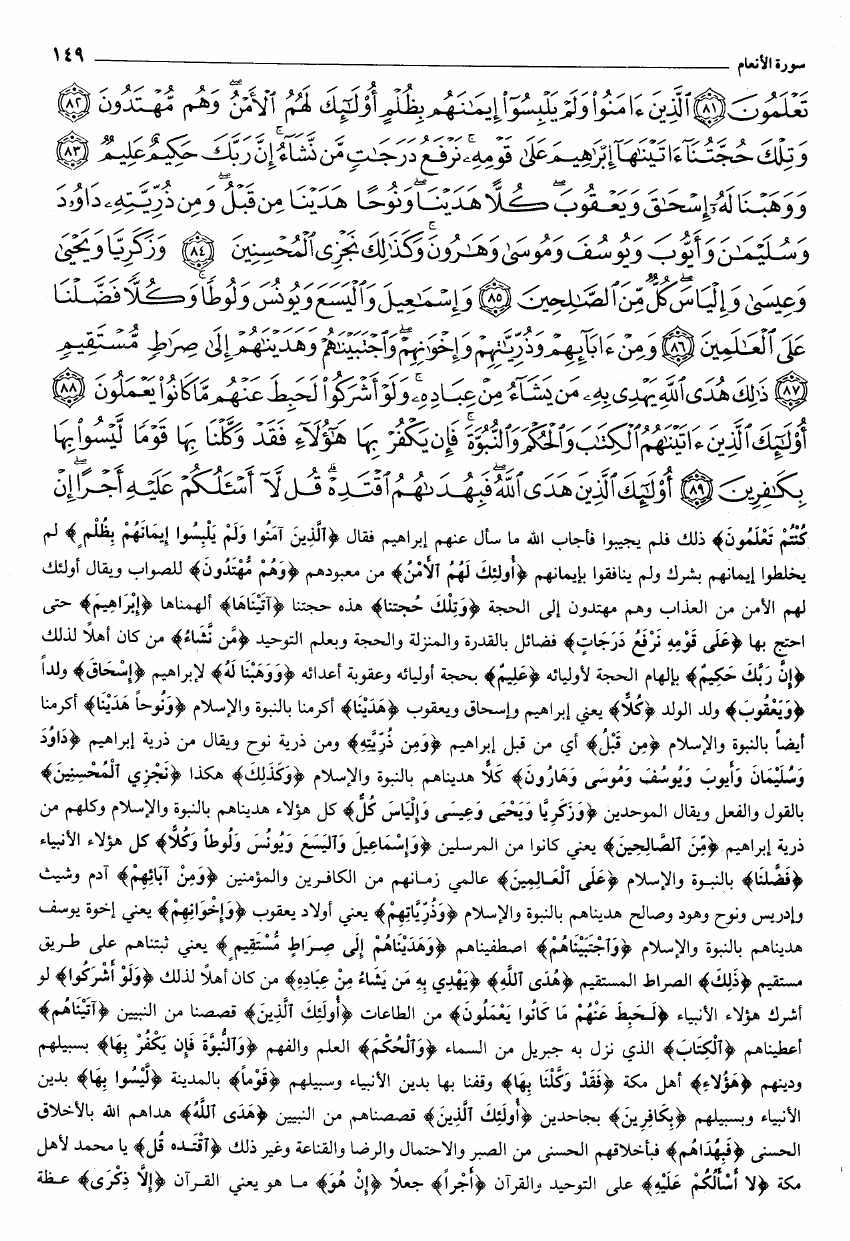 سورة الأنعام ١٤٩
تَعْلَمُونَ ﴿٨١﴾ ٱلَّذِينَ ءَامَنُوا۟ وَلَمْ يَلْبِسُوٓا۟ إِيمَـٰنَهُم بِظُلْمٍ أُو۟لَـٰٓئِكَ لَهُمُ ٱلْأَمْنُ ۖ وَهُم مُّهْتَدُونَ ﴿٨٢﴾
وَتِلْكَ حُجَّتُنَآ ءَاتَيْنَـٰهَآ إِبْرَٰهِيمَ عَلَىٰ قَوْمِهِۦ ۚ نَرْفَعُ دَرَجَـٰتٍ مَّن نَّشَآءُ ۗ إِنَّ رَبَّكَ حَكِيمٌ عَلِيمٌ ﴿٨٣﴾
وَوَهَبْنَا لَهُۥٓ إِسْحَـٰقَ وَيَعْقُوبَ ۚ كُلًّا هَدَيْنَا ۚ وَنُوحًا هَدَيْنَا مِن قَبْلُ ۖ وَمِن ذُرِّيَّتِهِۦ دَاوُۥدَ
وَسُلَيْمَـٰنَ وَأَيُّوبَ وَيُوسُفَ وَمُوسَىٰ وَهَـٰرُونَ ۚ وَكَذَٰلِكَ نَجْزِى ٱلْمُحْسِنِينَ ﴿٨٤﴾ وَزَكَرِيَّا وَيَحْيَىٰ
وَعِيسَىٰ وَإِلْيَاسَ ۖ كُلٌّ مِّنَ ٱلصَّـٰلِحِينَ ﴿٨٥﴾ وَإِسْمَـٰعِيلَ وَٱلْيَسَعَ وَيُونُسَ وَلُوطًا ۚ وَكُلًّا فَضَّلْنَا
عَلَى ٱلْعَـٰلَمِينَ ﴿٨٦﴾ وَمِنْ ءَابَآئِهِمْ وَذُرِّيَّـٰتِهِمْ وَإِخْوَٰنِهِمْ ۖ وَٱجْتَبَيْنَـٰهُمْ وَهَدَيْنَـٰهُمْ إِلَىٰ صِرَٰطٍ مُّسْتَقِيمٍ
﴿٨٧﴾ ذَٰلِكَ هُدَى ٱللَّهِ يَهْدِى بِهِۦ مَن يَشَآءُ مِنْ عِبَادِهِۦ ۚ وَلَوْ أَشْرَكُوا۟ لَحَبِطَ عَنْهُم مَّا كَانُوا۟ يَعْمَلُونَ ﴿٨٨﴾
أُو۟لَـٰٓئِكَ ٱلَّذِينَ ءَاتَيْنَـٰهُمُ ٱلْكِتَـٰبَ وَٱلْحُكْمَ وَٱلنُّبُوَّةَ ۚ فَإِن يَكْفُرْ بِهَا هَـٰٓؤُلَآءِ فَقَدْ وَكَّلْنَا بِهَا قَوْمًا لَّيْسُوا۟ بِهَا
بِكَـٰفِرِينَ ﴿٨٩﴾ أُو۟لَـٰٓئِكَ ٱلَّذِينَ هَدَى ٱللَّهُ ۖ فَبِهُدَىٰهُمُ ٱقْتَدِهْ ۗ قُل لَّآ أَسْـَٔلُكُمْ عَلَيْهِ أَجْرًا ۖ إِنْ
كُنْتُمْ تَعْلَمُونَ﴾ ذلك فلم يجيبوا فأجاب الله ما سأل عنهم إبراهيم فقال ﴿ٱلَّذِينَ آمَنُوا وَلَمْ يَلْبِسُوا إِيمَانَهُمْ بِظُلْمٍ﴾ لم
يخلطوا إيمانهم بشرك ولم ينافقوا بإيمانهم ﴿أُولَئِكَ لَهُمُ ٱلأَمْنُ﴾ من معبودهم ﴿وَهُمْ مُّهْتَدُونَ﴾ للصواب ويقال أولئك
لهم الأمن من العذاب وهم مهتدون إلى الحجة ﴿وَتِلْكَ حُجتنا﴾ هذه حجتنا ﴿آتَيْنَاهَا﴾ ألهمناها ﴿إِبْرَاهِيمَ﴾ حتى
احتج بها ﴿عَلَى قَوْمِهِ نَرْفَعُ دَرَجَاتٍ﴾ فضائل بالقدرة والمنزلة والحجة وبعلم التوحيد ﴿مَّن نَّشَاءُ﴾ من كان أهلاً لذلك
﴿إِنَّ رَبَّكَ حَكِيمٌ﴾ بإلهام الحجة لأوليائه ﴿عَلِيمٌ﴾ بحجة أوليائه وعقوبة أعدائه ﴿وَوَهَبْنَا لَهُ﴾ لإبراهيم ﴿إِسْحَاقَ﴾ ولداً
﴿وَيَعْقُوبَ﴾ ولد الولد ﴿كُلاًّ﴾ يعني إبراهيم وإسحاق ويعقوب ﴿هَدَيْنَا﴾ أكرمنا بالنبوة والإسلام ﴿وَنُوحاً هَدَيْنَا﴾ أكرمنا
أيضاً بالنبوة والإسلام ﴿مِن قَبْلُ﴾ أي من قبل إبراهيم ﴿وَمِن ذُرِّيَّتِهِ﴾ ومن ذرية نوح ويقال من ذرية إبراهيم ﴿دَاوُدَ
وَسُلَيْمَانَ وَأَيوبَ وَيُوسُفَ وَمُوسَى وَهَارُونَ﴾ كلاًّ هديناهم بالنبوة والإسلام ﴿وَكَذَلِكَ﴾ هكذا ﴿نَجْزِي ٱلْمُحْسِنِينَ﴾
بالقول والفعل ويقال الموحدين ﴿وَزَكَرِيَّا وَيَحْيَى وَعِيسَى وَإِلْيَاسَ كُلٌّ﴾ كل هؤلاء هديناهم بالنبوة والإسلام وكلهم من
ذرية إبراهيم ﴿مِّنَ ٱلصَّالِحِينَ﴾ يعني كانوا من المرسلين ﴿وَإِسْمَاعِيلَ وَٱلْيَسَعَ وَيُونُسَ وَلُوطاً وَكُلاًّ﴾ كل هؤلاء الأنبياء
﴿فَضَّلْنَا﴾ بالنبوة والإسلام ﴿عَلَى ٱلْعَالِمِينَ﴾ عالمي زمانهم من الكافرين والمؤمنين ﴿وَمِنْ آبَائِهِمْ﴾ آدم وشيث
وإدريس ونوح وهود وصالح هديناهم بالنبوة والإسلام ﴿وَذُرِّيَّاتِهِمْ﴾ يعني أولاد يعقوب ﴿وَإِخْوَانِهِمْ﴾ يعني إخوة يوسف
هديناهم بالنبوة والإسلام ﴿وَٱجْتَبَيْنَاهُمْ﴾ اصطفيناهم ﴿وَهَدَيْنَاهُمْ إِلَى صِرَاطٍ مُّسْتَقِيمٍ﴾ يعني ثبتناهم على طريق
مستقيم ﴿ذَلِكَ﴾ الصراط المستقيم ﴿هُدَى ٱللَّهِ﴾ ﴿يَهْدِي بِهِ مَن يَشَاءُ مِنْ عِبَادِهِ﴾ من كان أهلاً لذلك ﴿وَلَوْ أَشْرَكُوا﴾ لو
أشرك هؤلاء الأنبياء ﴿لَحَبِطَ عَنْهُمْ مَا كَانُوا يَعْمَلُونَ﴾ من الطاعات ﴿أُولَئِكَ ٱلَّذِينَ﴾ قصصنا من النبيين ﴿آتَيْنَاهُم﴾
أعطيناهم ﴿ٱلْكِتَابَ﴾ الذي نزل به جبريل من السماء ﴿وَٱلْحُكْمَ﴾ العلم والفهم ﴿وَٱلنُّبُوَّةَ فَإِن يَكْفُرْ بِهَا﴾ بسبيلهم
ودينهم ﴿هَؤُلاءِ﴾ أهل مكة ﴿فَقَدْ وَكَّلْنَا بِهَا﴾ وقفنا بها بدين الأنبياء وسبيلهم ﴿قَوْماً﴾ بالمدينة ﴿لَّيْسُوا بِهَا﴾ بدين
الأنبياء وبسبيلهم ﴿بِكَافِرِينَ﴾ بجاحدين ﴿أُولَئِكَ ٱلَّذِينَ﴾ قصصناهم من النبيين ﴿هَدَى ٱللَّهُ﴾ هداهم الله بالأخلاق
الحسنى ﴿فَبِهُدَاهُم﴾ فبأخلاقهم الحسنى من الصبر والاحتمال والرضا والقناعة وغير ذلك ﴿ٱقْتَده قُل﴾ يا محمد لأهل
مكة ﴿لا أَسْأَلُكُمْ عَلَيْهِ﴾ على التوحيد والقرآن ﴿أَجْراً﴾ جعلاً ﴿إِنْ هُوَ﴾ ما هو يعني القرآن ﴿إِلَّا ذِكْرَى﴾ عظة